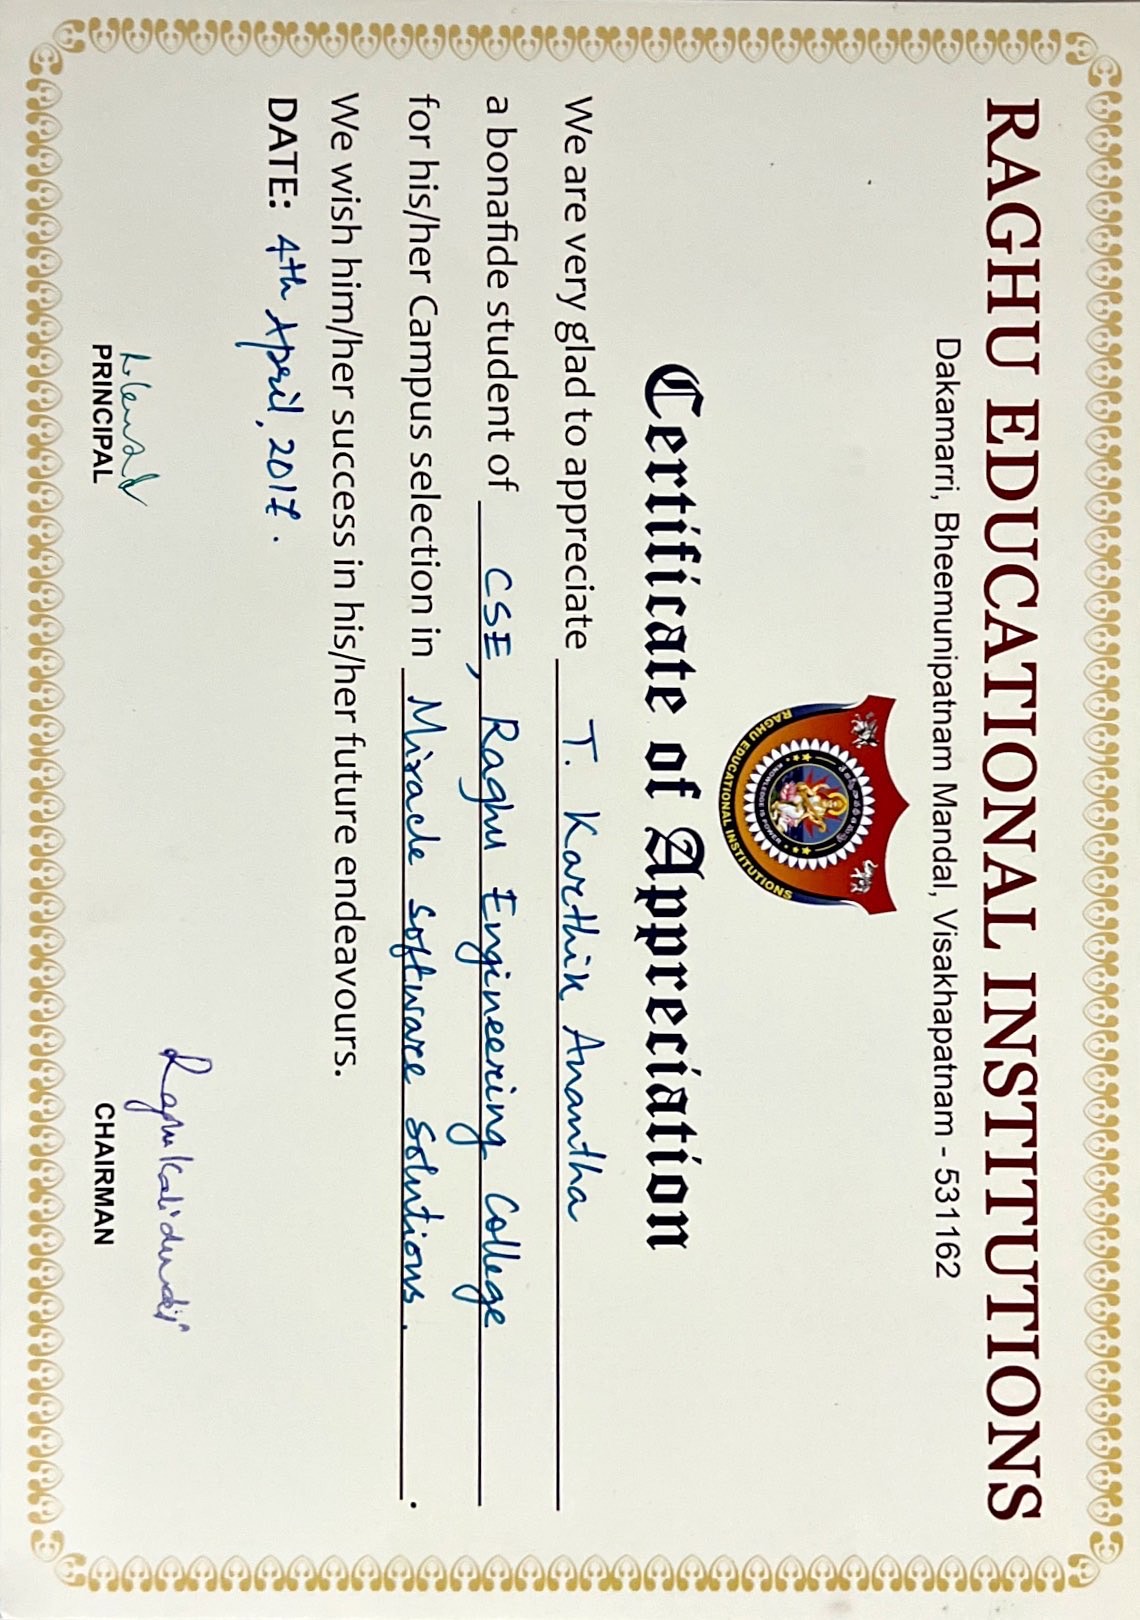 RAGHU EDUCATIONAL INSTITUTIONS
Dakamarri, Bheemunipatnam Mandal, Visakhapatnam - 531162
KNOWLEDGE IS POWER
RAGHU EDUCATIONAL INSTITUTIONS
Certificate of Appreciation
We are very glad to appreciate T. Karthik Anantha
a bonafide student of CSE, Raghu Engineering College
for his/her Campus selection in Miracle Software Solutions. .
We wish him/her success in his/her future endeavours.
DATE: 4th April, 2017.
Raghu Kalidindi
PRINCIPAL CHAIRMAN